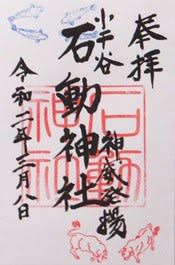 奉拝
小千谷
石動神社
神威発揚
令和二年三月八日
石動神社